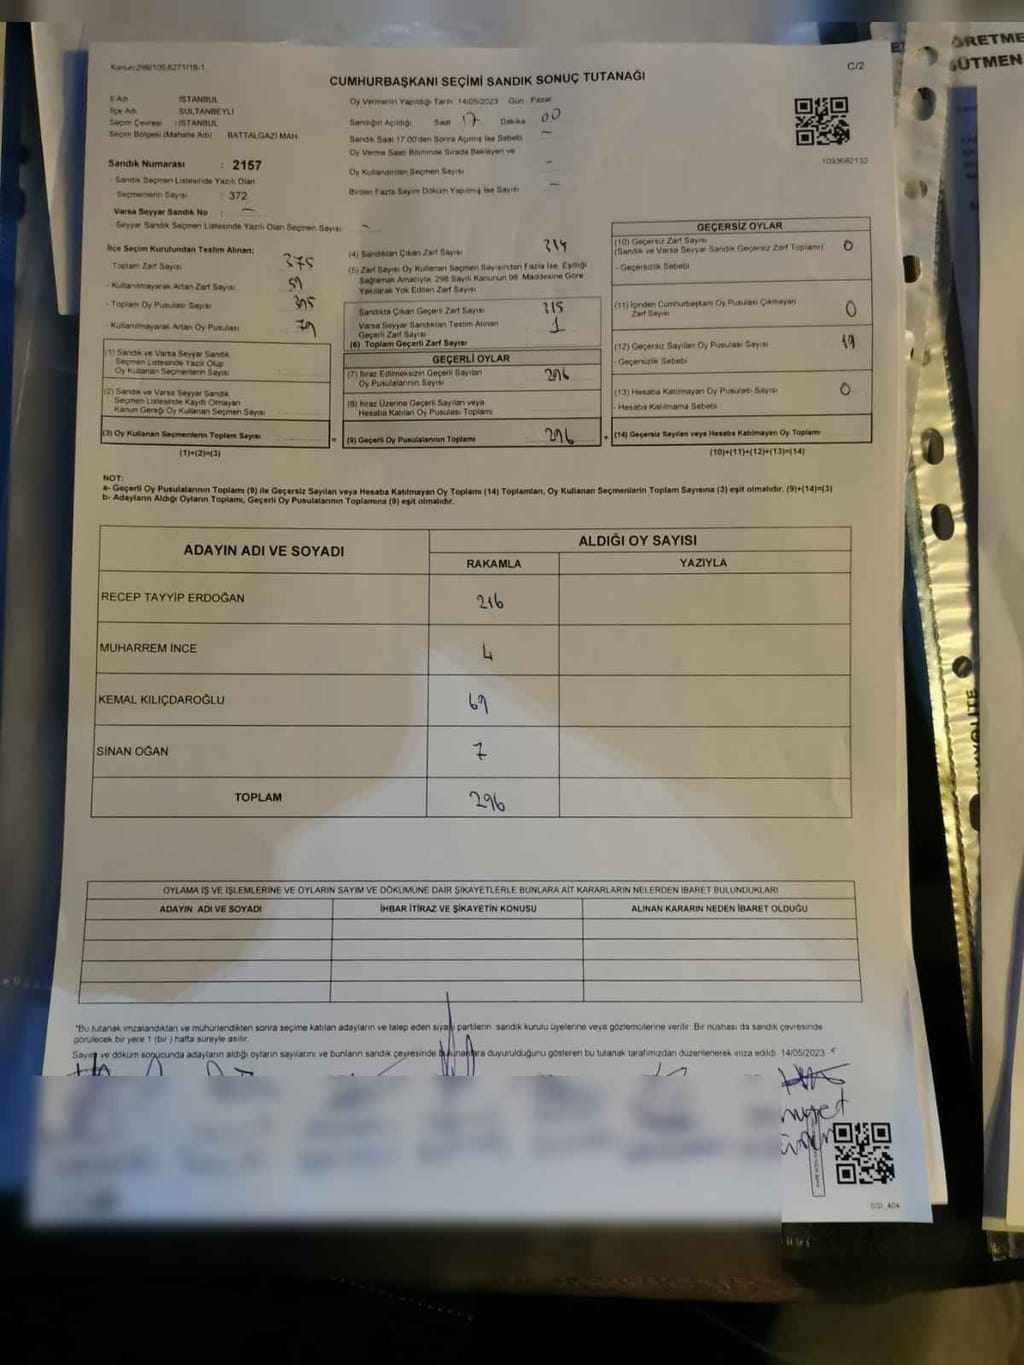 Kanun:298/105,6271/18-1
CUMHURBAŞKANI SEÇİMİ SANDIK SONUÇ TUTANAĞI
C/2
İl Adı : İSTANBUL
İlçe Adı : SULTANBEYLİ
Seçim Çevresi : İSTANBUL
Seçim Bölgesi (Mahalle Adı) : BATTALGAZİ MAH.
Sandık Numarası : 2157
- Sandık Seçmen Listesinde Yazılı Olan
Seçmenlerin Sayısı : 372
Varsa Seyyar Sandık No : —
- Seyyar Sandık Seçmen Listesinde Yazılı Olan Seçmen Sayısı : -
Oy Vermenin Yapıldığı Tarih 14/05/2023 Gün Pazar
Sandığın Açıldığı Saat 17 Dakika 00
Sandık Saat 17.00'den Sonra Açılmış İse Sebebi —
Oy Verme Saati Bitiminde Sırada Bekleyen ve
Oy Kullandırılan Seçmen Sayısı -
Birden Fazla Sayım Döküm Yapılmış İse Sayısı —
1093682132
İlçe Seçim Kurulundan Teslim Alınan;
Toplam Zarf Sayısı 375
- Kullanılmayarak Artan Zarf Sayısı
- Toplam Oy Pusulası Sayısı
- Kullanılmayarak Artan Oy Pusulası 79
(1) Sandık ve Varsa Seyyar Sandık
Seçmen Listesinde Yazılı Olup
Oy Kullanan Seçmenlerin Sayısı
(2) Sandık ve Varsa Seyyar Sandık
Seçmen Listesinde Kayıtlı Olmayan
Kanun Gereği Oy Kullanan Seçmen Sayısı
(3) Oy Kullanan Seçmenlerin Toplam Sayısı
(1)+(2)=(3)
(4) Sandıktan Çıkan Zarf Sayısı 314
(5) Zarf Sayısı Oy Kullanan Seçmen Sayısından Fazla İse, Eşitliği
Sağlamak Amacıyla, 298 Sayılı Kanunun 98. Maddesine Göre
Yakılarak Yok Edilen Zarf Sayısı
Sandıkta Çıkan Geçerli Zarf Sayısı 315
Varsa Seyyar Sandıktan Teslim Alınan
Geçerli Zarf Sayısı 1
(6) Toplam Geçerli Zarf Sayısı
GEÇERLİ OYLAR
(7) İtiraz Edilmeksizin Geçerli Sayılan
Oy Pusulalarının Sayısı 296
(8) İtiraz Üzerine Geçerli Sayılan veya
Hesaba Katılan Oy Pusulası Toplamı
= (9) Geçerli Oy Pusulalarının Toplamı 296
GEÇERSİZ OYLAR
(10) Geçersiz Zarf Sayısı
(Sandık ve Varsa Seyyar Sandık Geçersiz Zarf Toplamı) 0
- Geçersizlik Sebebi
(11) İçinden Cumhurbaşkanı Oy Pusulası Çıkmayan
Zarf Sayısı 0
(12) Geçersiz Sayılan Oy Pusulası Sayısı 19
- Geçersizlik Sebebi
(13) Hesaba Katılmayan Oy Pusulası Sayısı 0
- Hesaba Katılmama Sebebi
+ (14) Geçersiz Sayılan veya Hesaba Katılmayan Oy Toplamı
(10)+(11)+(12)+(13)=(14)
NOT:
a- Geçerli Oy Pusulalarının Toplamı (9) ile Geçersiz Sayılan veya Hesaba Katılmayan Oy Toplamı (14) Toplamları, Oy Kullanan Seçmenlerin Toplam Sayısına (3) eşit olmalıdır. (9)+(14)=(3)
b- Adayların Aldığı Oyların Toplamı, Geçerli Oy Pusulalarının Toplamına (9) eşit olmalıdır.
ADAYIN ADI VE SOYADI
ALDIĞI OY SAYISI
RAKAMLA YAZIYLA
RECEP TAYYİP ERDOĞAN 216
MUHARREM İNCE 4
KEMAL KILIÇDAROĞLU 69
SİNAN OĞAN 7
TOPLAM 296
OYLAMA İŞ VE İŞLEMLERİNE VE OYLARIN SAYIM VE DÖKÜMÜNE DAİR ŞİKAYETLERLE BUNLARA AİT KARARLARIN NELERDEN İBARET BULUNDUKLARI
ADAYIN ADI VE SOYADI İHBAR İTİRAZ VE ŞİKAYETİN KONUSU ALINAN KARARIN NEDEN İBARET OLDUĞU
"Bu tutanak imzalandıktan ve mühürlendikten sonra seçime katılan adayların ve talep eden siyasi partilerin sandık kurulu üyelerine veya gözlemcilerine verilir. Bir nüshası da sandık çevresinde
görülecek bir yere 1 (bir) hafta süreyle asılır.
Sayım ve döküm sonucunda adayların aldığı oyların sayılarını ve bunların sandık çevresinde bulunanlara duyurulduğunu gösteren bu tutanak tarafımızdan düzenlenerek imza edildi. 14/05/2023